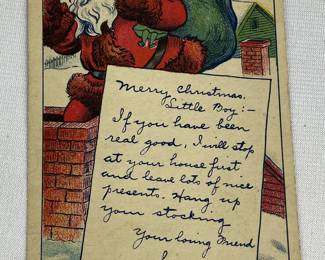 Merry Christmas.
Little Boy:-
If you have been
real good, I will stop
at your house first
and leave lots of nice
presents. Hang up
your stocking
Your loving Friend